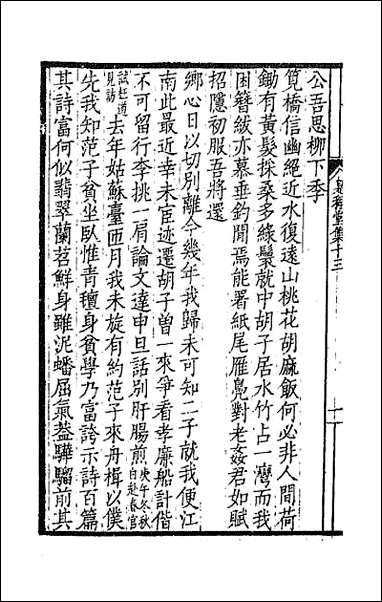 公吾思柳下季
筧橋信幽絕近水復遠山桃花胡麻飯何必非人間荷
鋤有黃髮採桑多綠鬟就中胡子居水竹占一灣而我
困簪紱亦慕垂釣閒焉能署紙尾雁鳧對老姦君如賦
招隱初服吾將還
鄉心日以切別離今幾年我歸未可知二子就我便江
南此最近幸未臣迹遷胡子曾一來爭看孝廉船計偕
不可留行李挑一肩論文達申旦話別肝腸煎庚午冬秋白赴春官
試枉道見訪去年姑蘇臺匝月我未旋有約范子來舟楫以僕
先我知范子貧坐臥惟青氊身貧學乃富誇示詩百篇
其詩富何似翡翠蘭苕鮮身雖泥蟠屈氣蓋驊騮前其
集十三
十一